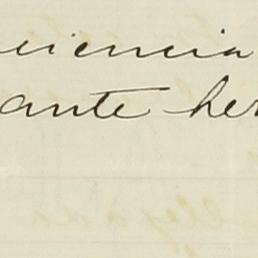 ciencia
ante her